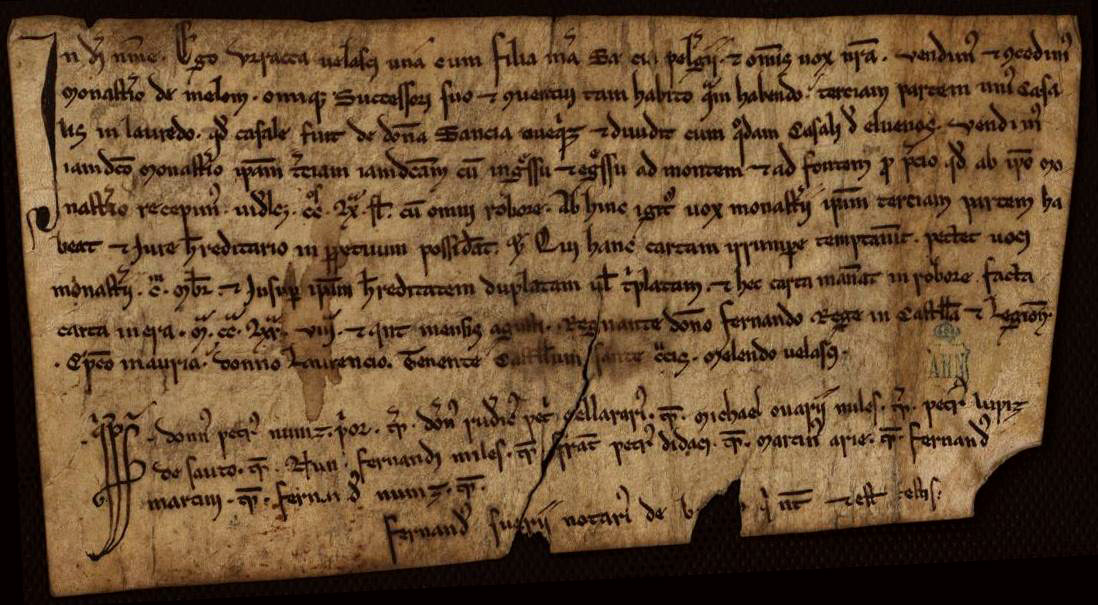 In dei nme. Ego Urracca uelasci una cum filia mea Sancia pelagii. et omnis uox nra. Vendimus et concedimus
Monasterio de melon. omniqz Successori suo et conuentui tam habito qm habendo. terciam partem unius Casa
lis in lauredo. qd casale fuit de dona Sancia et diuidit cum qodam Casali de eluenos. Vendimus
iamdco Monasterio ipam terciam iamdcam cu ingressu et egressu ad montem et ad fontem pro pcio qd ab ipo Mo
nasterio recepimus. uidlcz. cc. Lx. sl. cu omni robore. Ab hinc igitr uox monasterii ipam terciam partem ha
beat et Jure hreditario in ppetuum possideat. Qui hanc cartam irrumpe temptauit. pectet uoci
monasterii. c. mbr. et Insup ipam hreditatem duplatam ul triplatam. et hec carta maneat in robore facta
carta in era. M. cc. Lxx. viiii. et qnt mensis Regnante dono Fernando Rege in Castella et Legione.
Epco in auria. donno Laurencio. Tenente Castellum Melendo uelasci.
donus petrus nuniz. pror. ts. petri Cellararius. ts. Michael ouarii miles. ts. petrus lupiz
de sauto. ts. Fernandi miles. ts. frat petrus didaci. ts. Martin arie. ts. Fernandus
martini. ts. Fernandus nuniz. ts.
Fernandus suarii notarius de et est testis.
AHN